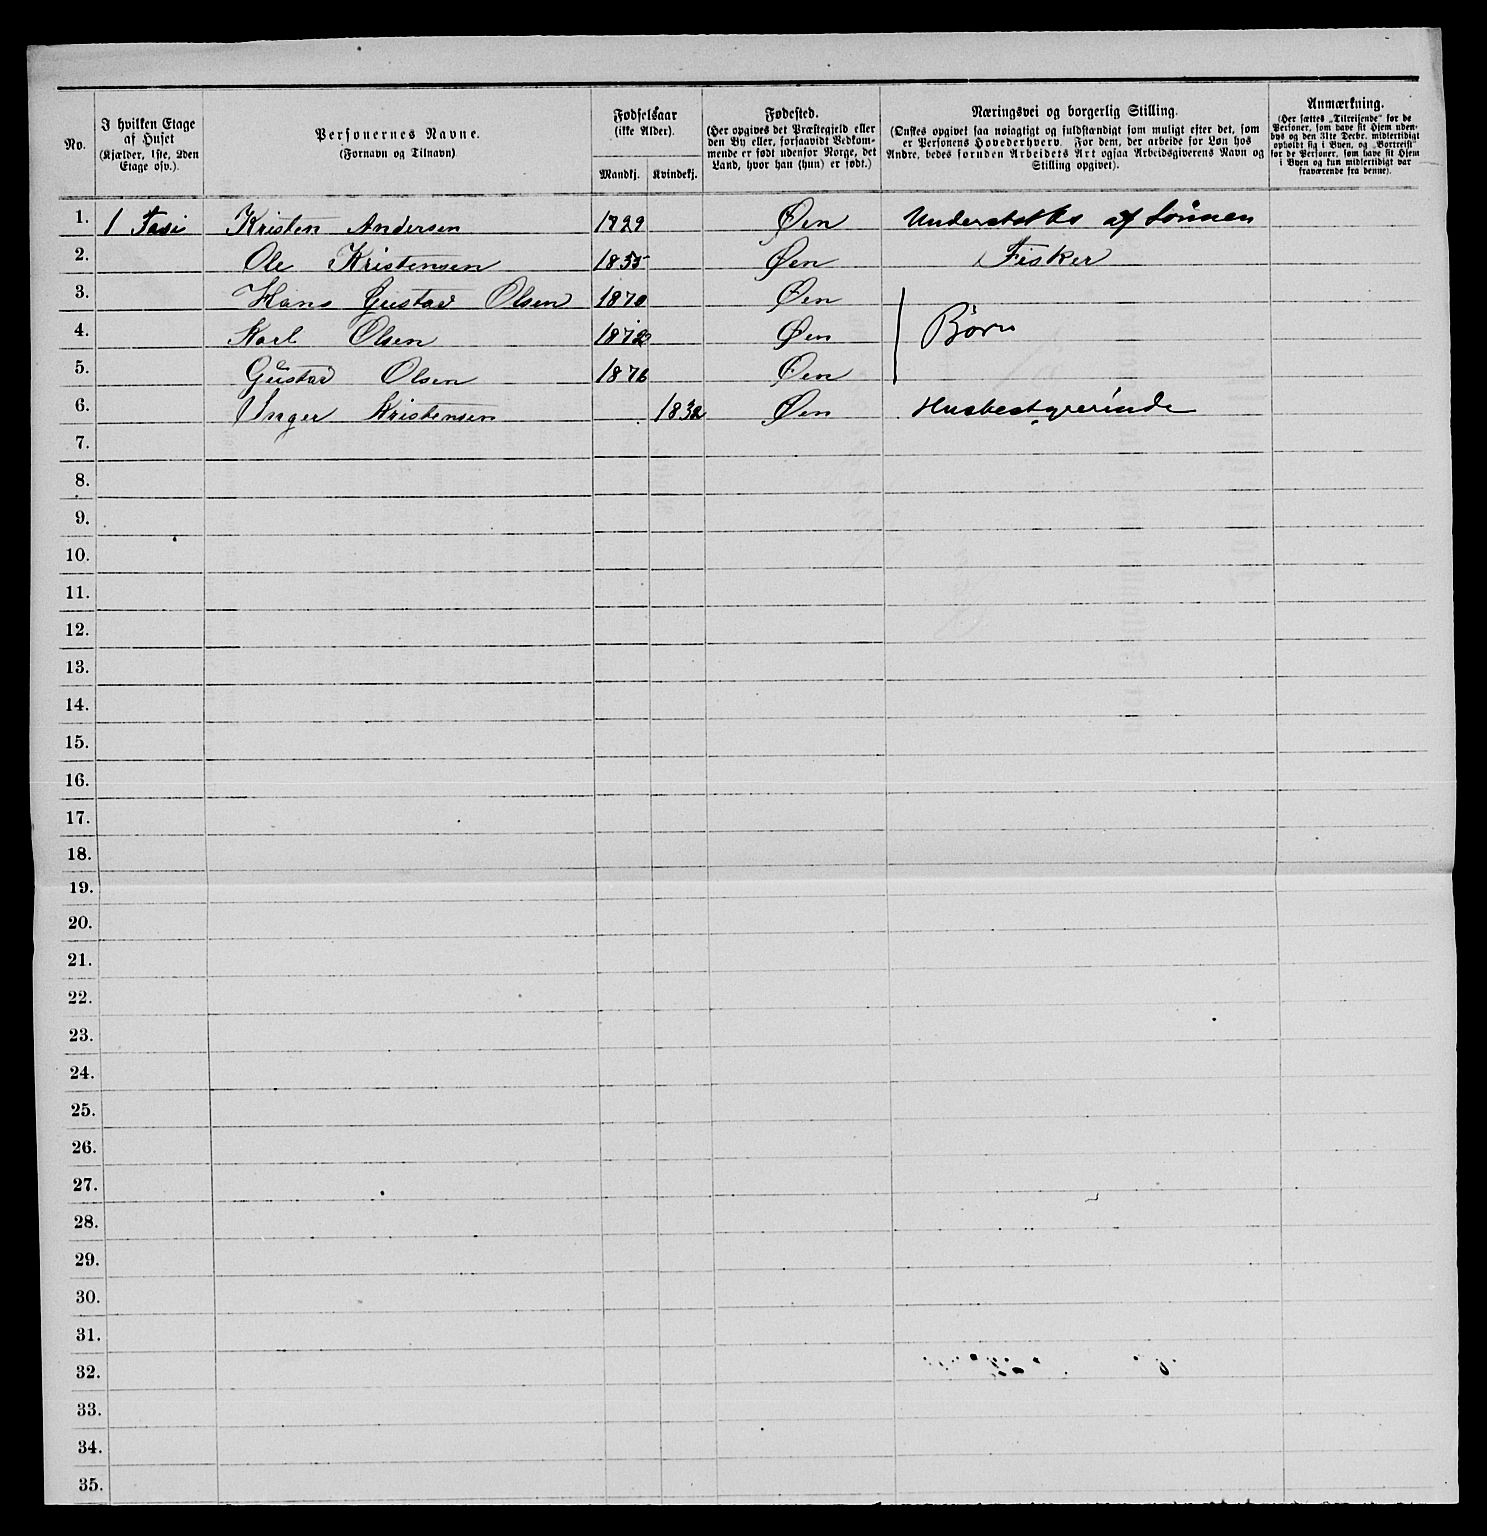 No.
I hvilken Etage af Huset (Kjælder, 1ste, 2den Etage osv.).
Personernes Navne. (Fornavn og Tilnavn)
Fødselsaar (ikke Alder).
Mandkj. Kvindekj.
Fødested. (Her opgives det Præstegjeld eller den By eller, forsaavidt Vedkommende er født udenfor Norge, det Land, hvor han (hun) er født.)
Næringsvei og borgerlig Stilling. (Ønskes opgivet saa nøiagtigt og fuldstændigt som muligt efter det, som er Personens Hovederhverv. For dem, der arbeide for Løn hos Andre, bedes foruden Arbeidets Art ogsaa Arbeidsgiverens Navn og Stilling opgivet).
Anmærkning. (Her sættes „Tilreisende“ for de Personer, som have sit Hjem udenbys og den 31te Decbr. midlertidigt opholdt sig i Byen, og „Bortreist“ for de Personer, som have sit Hjem i Byen og kun midlertidigt var fraværende fra denne).
1. 1 Kristen Andersen 1829 Øen af Sønnen
2. Ole Kristensen 1855 Øen Fisker
3. Hans Gustav Olsen 1870 Øen
4. Karl Olsen 1872 Øen Børn
5. Gustav Olsen 1876 Øen
6. Inger Kristensen 1832 Øen Husbestyrerinde
7.
8.
9.
10.
11.
12.
13.
14.
15.
16.
17.
18.
19.
20.
21.
22.
23.
24.
25.
26.
27.
28.
29.
30.
31.
32.
33.
34.
35.